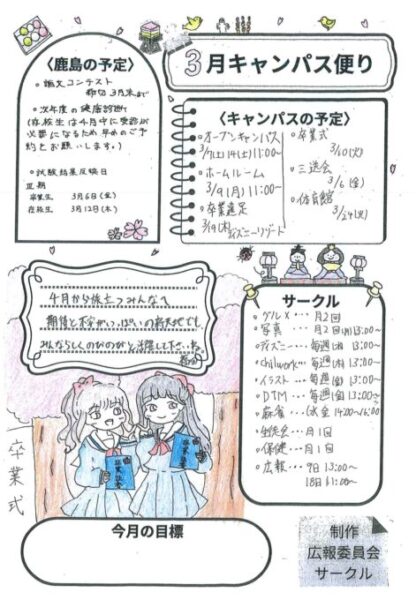 3月キャンパス便り
〈鹿島の予定〉
。論文コンテスト
締切3月末まで
。次年度の健康診断
(在校生は4月中に受診が
必要になるため早めのご予
約をお願いします。)
。試験結果反映日
正規
卒業生 3月6日(金)
在校生 3月12日(木)
〈キャンパスの予定〉
。オープンキャンパス
3/7(土)14(土)11:00〜
。ホームルーム
3/9(月)11:00〜
。卒業遠足
3/19(木)ディズニーリゾート
。卒業式
3/10(火)
。三送会
3/6(金)
。体育館
3/24(火)
4月から旅立つみんなへ
期待と不安がいっぱいの新天地です。
みんならしくのびのびと活躍して下さいね
サークル
。ゲルX・・・月2回
。写真・・・月2回(月)13:00〜
。ディズニー・・・毎週(木)13:00〜
。chillwork・・・毎週(木)13:00〜
。イラスト・・・毎週(金)13:00〜
。DTM・・・毎週(金)13:00〜
。麻雀・・・(水)金14:00〜16:00
。生徒会・・・月1回
。保健・・・月1回
。広報・・・9日13:00〜
18日11:00〜
卒業式
卒業証書
今月の目標
制作
広報委員会
サークル